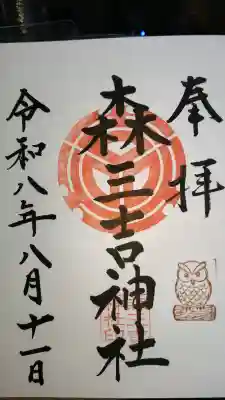 奉拝
森三吉神社
令和八年八月十一日